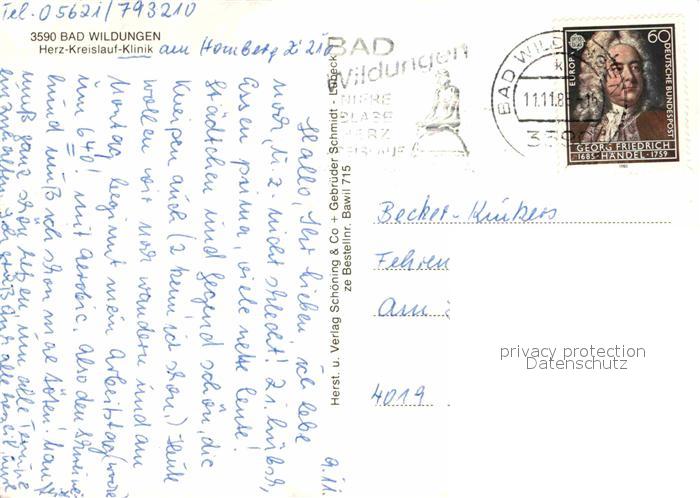 Tel. 05621/793210
3590 BAD WILDUNGEN
Herz-Kreislauf-Klinik am Homberg Zi 210
9.11.
Hallo, Ihr Lieben, ich lebe
noch, u. z. nicht schlecht! Zi. hübsch,
Essen prima, viele nette Leute!
Städtchen und Gegend schön, die
Kneipen auch (2 kenn ich schon.) Heute
wollen wir noch wandern und am
Montag beginnt mein Arbeitstag
um 6 40! mit Aerobic. Also den
Hund muß ich schon mal töten! Man
muß ganz schön um alle Termine
einzuhalten. alle
Herst. u. Verlag Schöning & Co + Gebrüder Schmidt - Lübeck
ze Bestellnr. Bawil 715
BAD
Wildungen
NIERE
BLASE
HERZ
BAD WILDUNGEN
11.11.85
3590
EUROPA
60
DEUTSCHE BUNDESPOST
GEORG FRIEDRICH
1685 HÄNDEL 1759
1985
Becker-Künkers
Fehren
Am
4019
privacy protection
Datenschutz